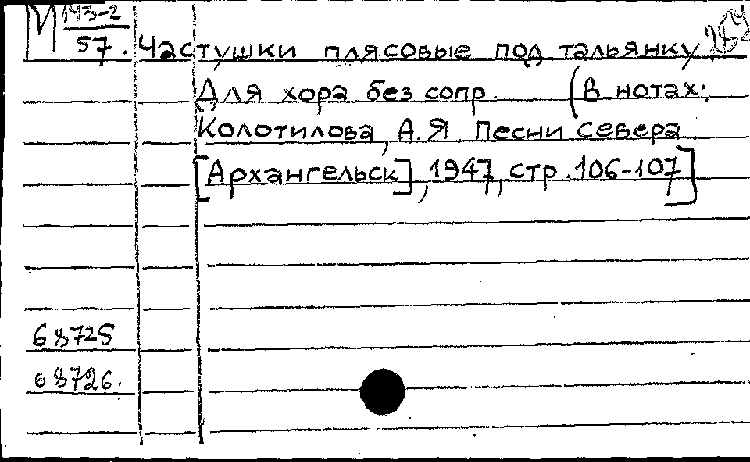 М 143-2
57. Частушки плясовые под тальянку
Для хора без сопр. (В нотах:
Колотилова, А.Я. Песни Севера
[Архангельск], 1947, стр. 106-107]
68725
68726.